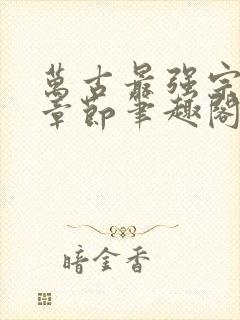 萬古最强宗
章節筆趣閣
暗金香